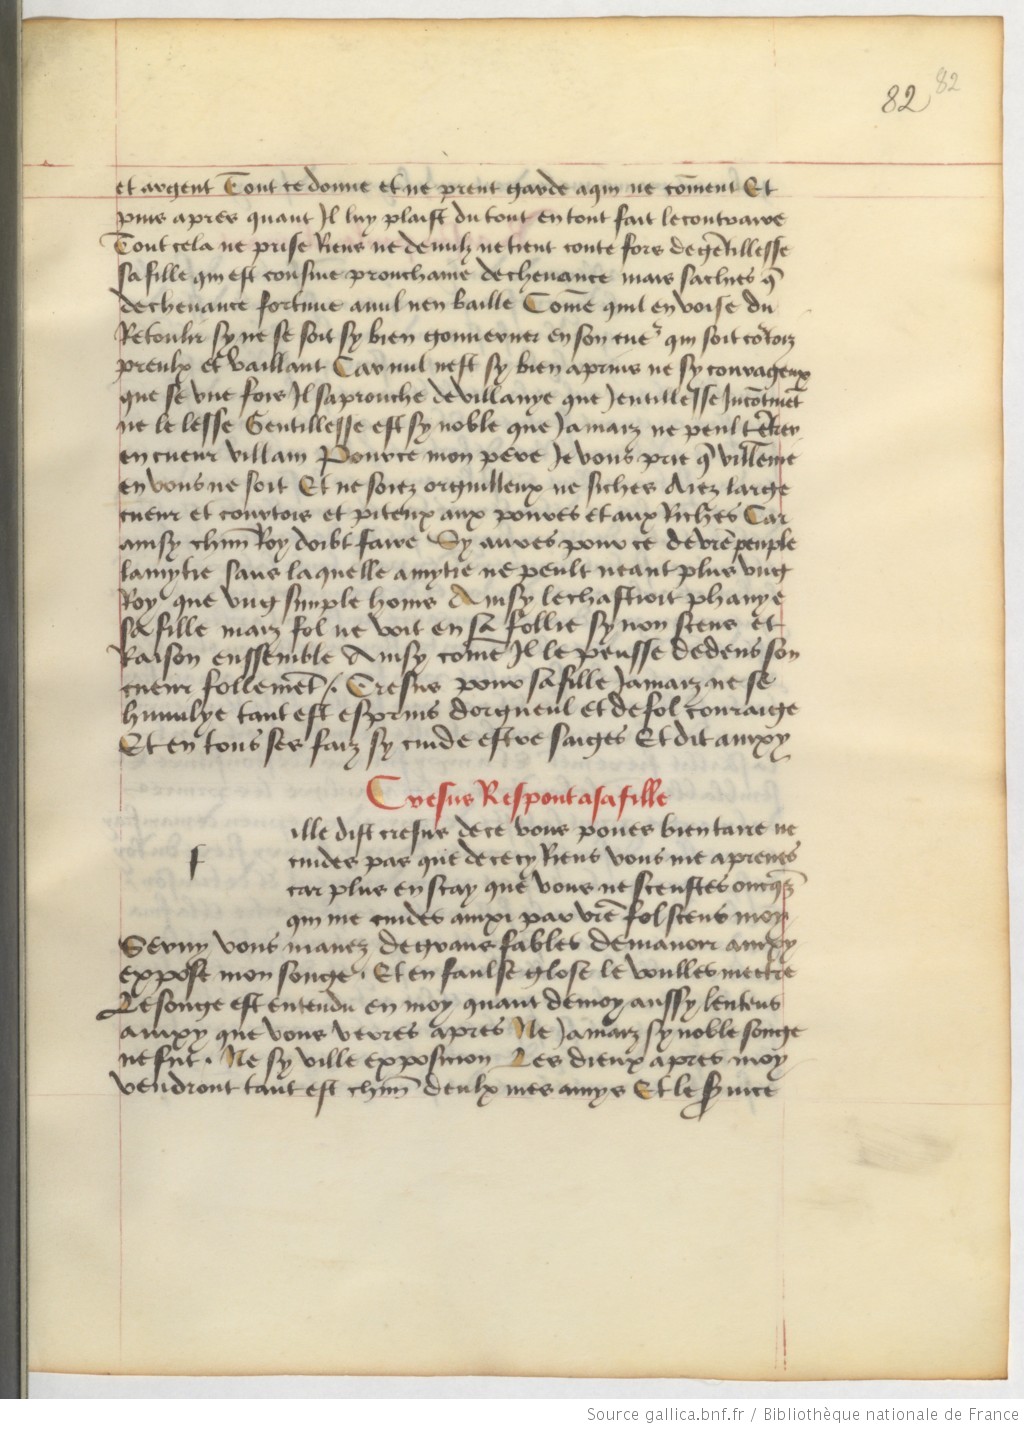 82 82
et argent Tout ce donne et ne prent garde a qui ne cōment Et
puis apres quant Il luy plaist du tout en tout fait le contraire
Tout cela ne prise Riens ne de nulz ne tient conte fors de gētillesse
sa fille qui est cousine prouchaine de chevance mais saches q̄
de chevance fortune a nul nen baille Cōme quil en voise du
Retoulir sy ne se soit sy bien gouverner en son cueʳ qui soit cortoiz
preulx et vaillant Car nul nest sy bien aprins ne sy courageux
que se une fois Il saprouche de villanye que Jentillesse Incōtinēt
ne le lesse Gentillesse est sy noble que Jamaiz ne peult ētrer
en cueur villain Pource mon pere Je vous prie q̄ villēnie
en vous ne soit Et ne soiez orguilleux ne siches Aiez large
cueur et courtois et piteux aux poures et aux Riches Car
ainsy chūn Roy doibt faire Sy aures pour ce de vr̄e peuple
lamytie sans laquelle amytie ne peult neant plus ung
Roy que ung simple home Ainsy le chastioit phanye
sa fille maiz fol ne voit en sa follie sy non scens et
Raison enssemble Ainsy cōme Il le pensse dedens son
cueur follemēt /. Cresus pour sa fille Jamaiz ne se
humulye tant est esprins dorgueul et de fol couraige
Et en tous ses faiz sy cuide estre saiges Et dit ainxy
Cresus Respont a sa fille
f ille dist cresus de ce vous poues bien taire ne
cuides pas que de cecy Riens vous me aprenes
car plus en scay que vous ne sceustes oncq̄z
qui me cuides ainxi par vr̄e fol scens moy
Servy vous mavez de grans fables de mavoir ainxy
expose mon songe. Et en faulse glose le voulles mettre
Le songe est entendu en moy quant de moy aussy lentens
ainxy que vous verres apres Ne Jamaiz sy noble songe
ne fut. Ne sy ville exposicion Les dieux apres moy
vendront tant est chūn deulx mes amys Et le sʳvice
Source gallica.bnf.fr / Bibliothèque nationale de France